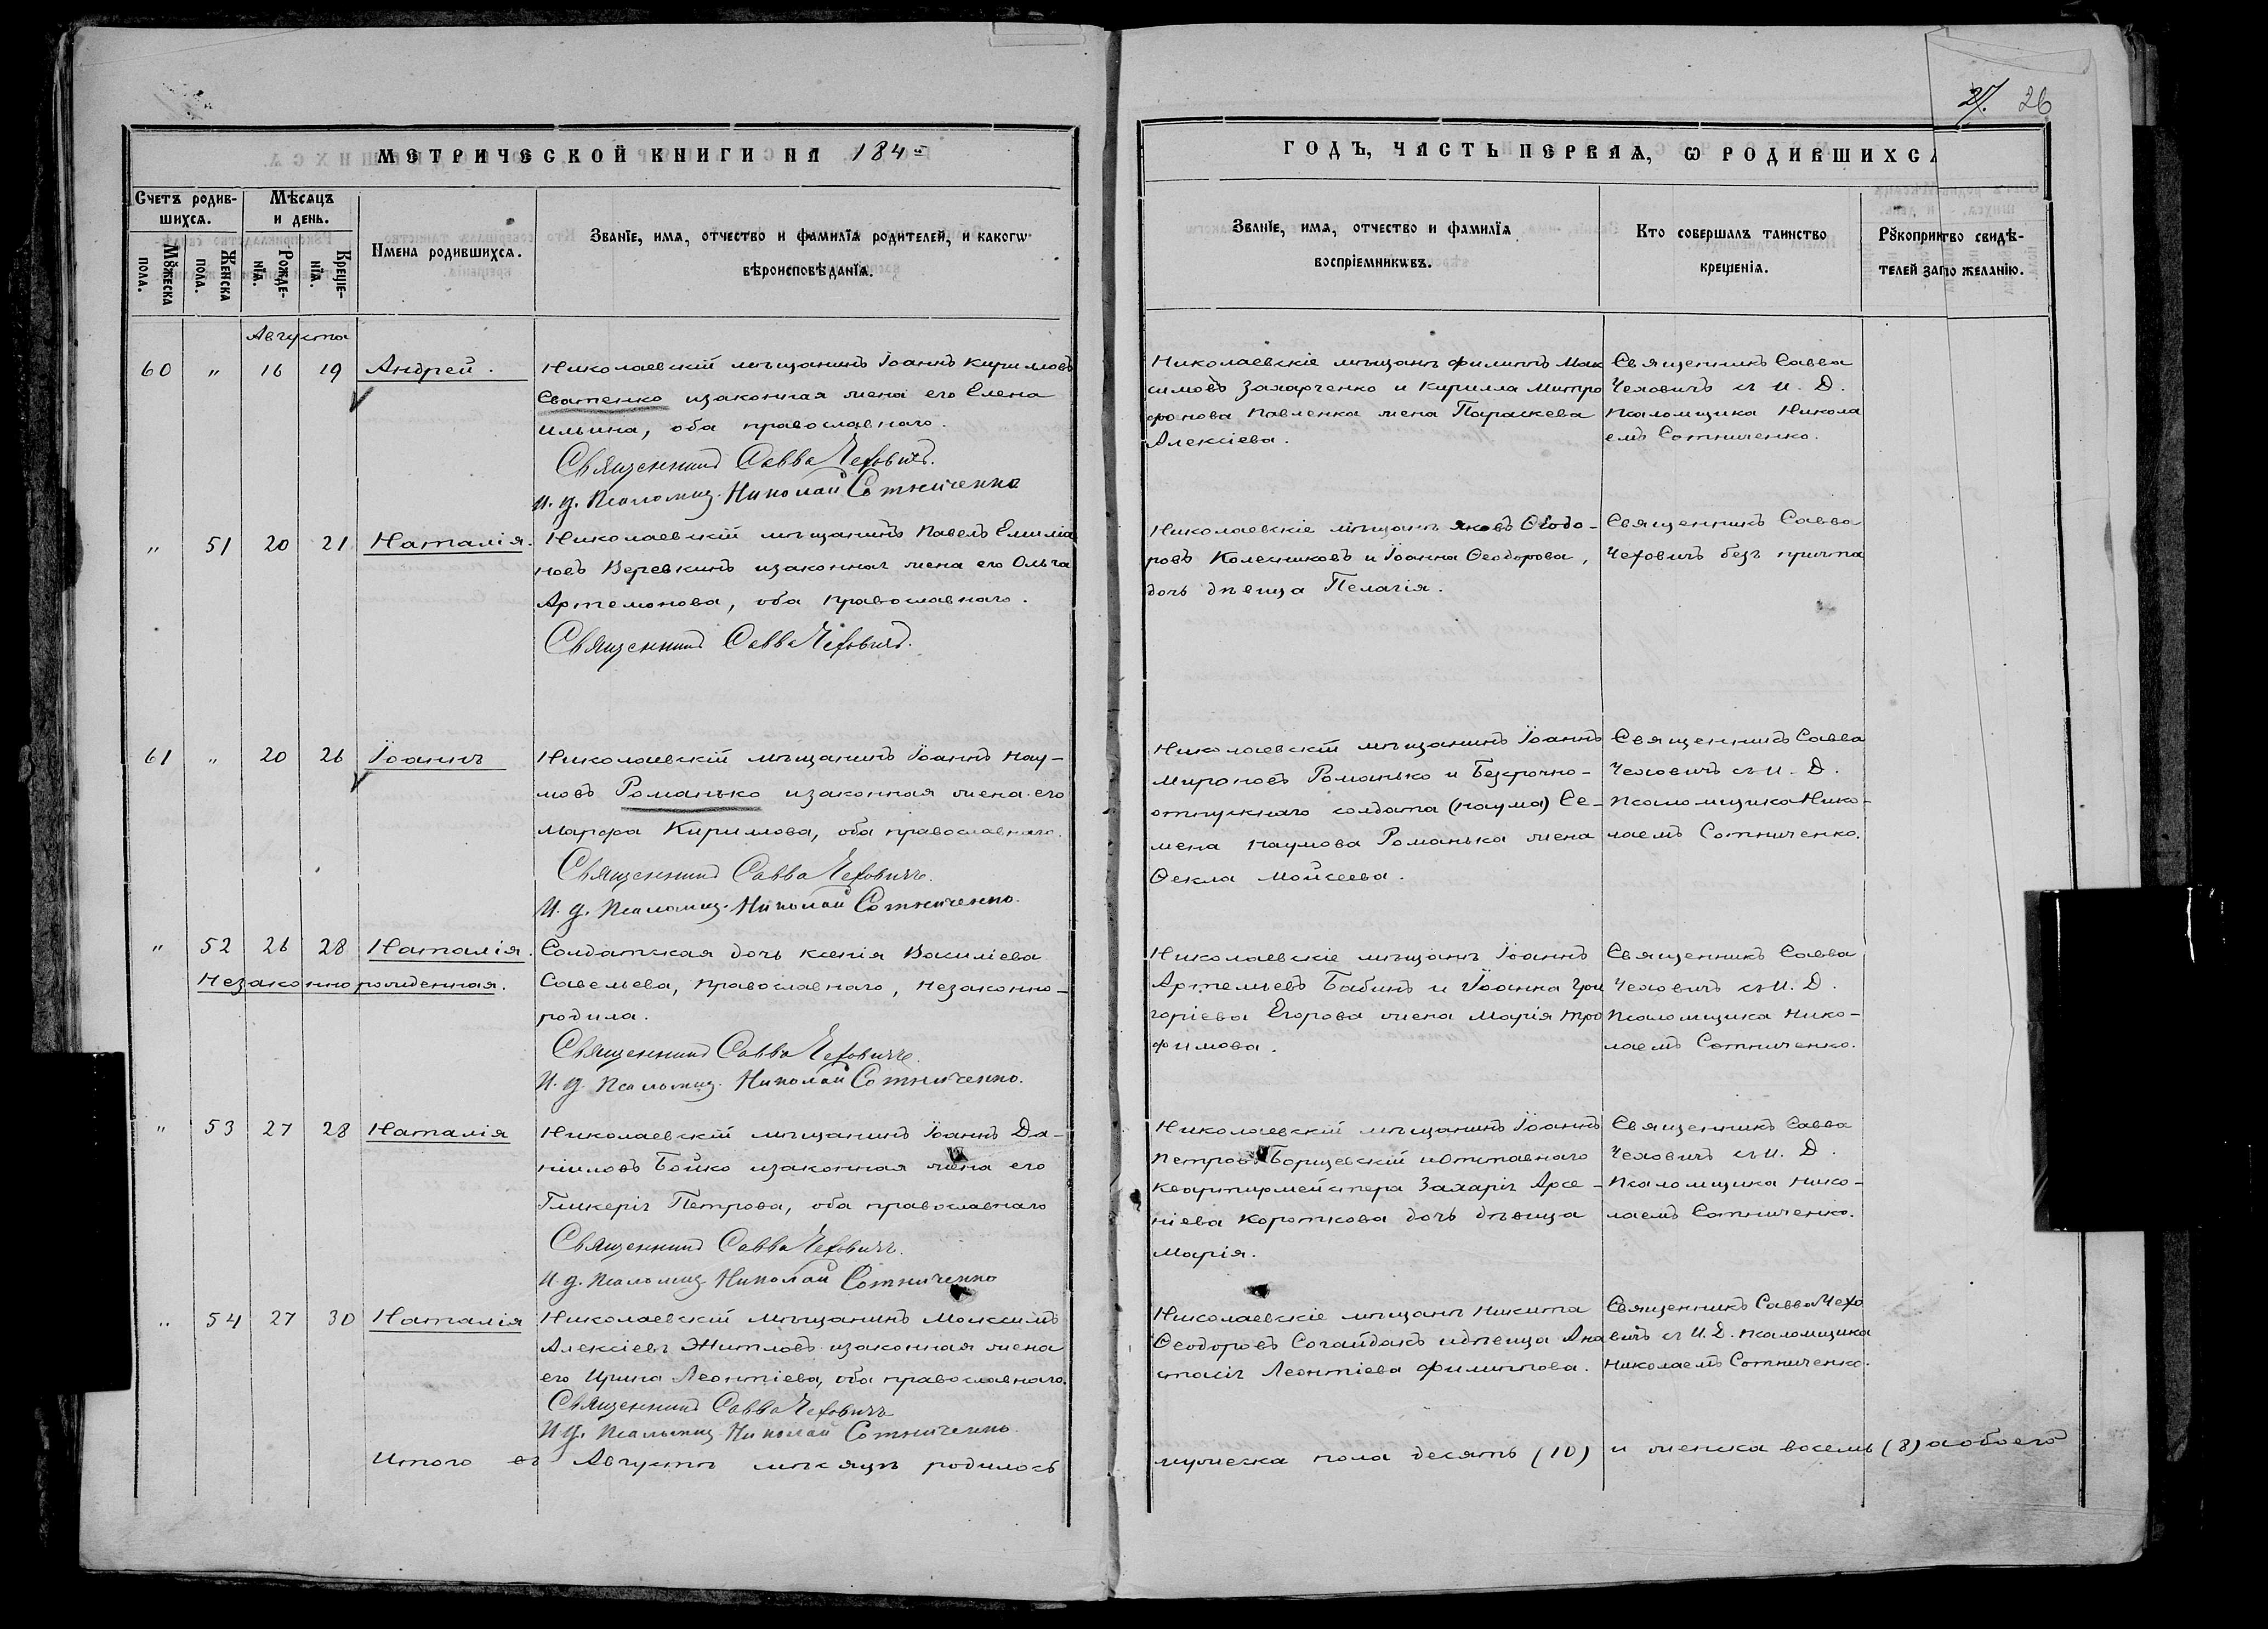 27. 26
МЕТРИЧЕСКОЙ КНИГИ НА 184
ГОДЪ, ЧАСТЬ ПЕРВАѦ, Ѡ РОДИВШИХСѦ
Счетъ родив-
шихсѧ.
Мꙋжеска
пола.
Женска
пола.
Мѣсѧцъ
и день.
Рожде-
нїѧ.
Креще-
нїѧ.
Имена родившихсѧ.
Званїе, имѧ, отчество и фамилїѧ родителей, и какогѡ
вѣроисповѣданїѧ.
Званїе, имѧ, отчество и фамилїѧ
воспрїемникѡвъ.
Кто совершалъ таинство
крещенїѧ.
Рꙋкоприкство свидѣ-
телей запо желанїю.
Августа
60 " 16 19 Андрей.
Николаевскій мѣщанинъ Іоаннъ Кирилловъ
Сватенко изаконная жена его Елена
Ильина, оба православнаго.
Священникъ Савва Чеховичъ.
И. д. Псаломщ. Николай Сотниченко
Николаевскіе мѣщанъ Филиппъ Мак
симовъ Захарченко и Кирилла Митро
фонова Павленка жена Параскева
Алексіева.
Священникъ Савва
Чеховичъ съ И. Д.
Псаломщика Никола
емъ Сотниченко.
" 51 20 21 Наталія.
Николаевскій мѣщанинъ Павелъ Емиліа
новъ Веревкинъ изаконная жена его Ольга
Артемонова, оба православнаго.
Священникъ Савва Чеховичъ.
Николаевскіе мѣщанъ Яковъ Ѳеодо-
ровъ Колесниковъ и Іоанна Ѳеодорова,
дочь дѣвица Пелагія.
Священникъ Савва
Чеховичъ безъ причта
61 " 20 26 Іоаннъ
Николаевскій мѣщанинъ Іоаннъ Нау-
мовъ Романько изаконная жена его
Марфа Кирилова, оба православнаго.
Священникъ Савва Чеховичъ.
И. д. Псаломщ. Николай Сотниченко.
Николаевскій мѣщанинъ Іоаннъ
Мироновъ Романько и Безсрочно-
отпускнаго солдата (Наума) Се-
мена Наумова Романька жена
Ѳекла Мойсеева.
Священникъ Савва
Чеховичъ съ И. Д.
Псаломщика Нико-
лаемъ Сотниченко.
" 52 26 28 Наталія.
Незаконнорожденная.
Солдатская дочь Ксенія Василіева
Савельева, православнаго, незаконно-
родила.
Священникъ Савва Чеховичъ.
И. д. Псаломщ. Николай Сотниченко.
Николаевскіе мѣщанъ Іоаннъ
Артемьевъ Бабинъ и Іоанна Гри
горіева Егорова жена Марія Тро
фимова.
Священникъ Савва
Чеховичъ съ И. Д.
Псаломщика Нико-
лаемъ Сотниченко.
" 53 27 28 Наталія
Николаевскій мѣщанинъ Іоаннъ Да-
ніиловъ Бойко изаконная жена его
Гликерія Петрова, оба православнаго
Священникъ Савва Чеховичъ.
И. д. Псаломщ. Николай Сотниченко
Николаевскій мѣщанинъ Іоаннъ
Петровъ Борщевскій иотставнаго
Квартирмейстера Захарія Арсе-
ніева Короткова дочь дѣвица
Марія.
Священникъ Савва
Чеховичъ съ И. Д.
Псаломщика Нико-
лаемъ Сотниченко.
" 54 27 30 Наталія
Николаевскій мѣщанинъ Максимъ
Алексіевъ Житловъ изаконная жена
его Ирина Леонтіева, оба православнаго.
Священникъ Савва Чеховичъ
И. д. Псаломщ. Николай Сотниченко.
Николаевскіе мѣщанъ Никита
Ѳеодоровъ Согайдакъ идѣвица Ана
стасія Леонтіева Филиппова.
Священникъ Савва Чехо
вичъ съ И. Д. Псаломщика
Николаемъ Сотниченко.
Итого въ Августѣ мѣсяцѣ родилось мужеска пола десять (10) и женска восемь (8) аобоего